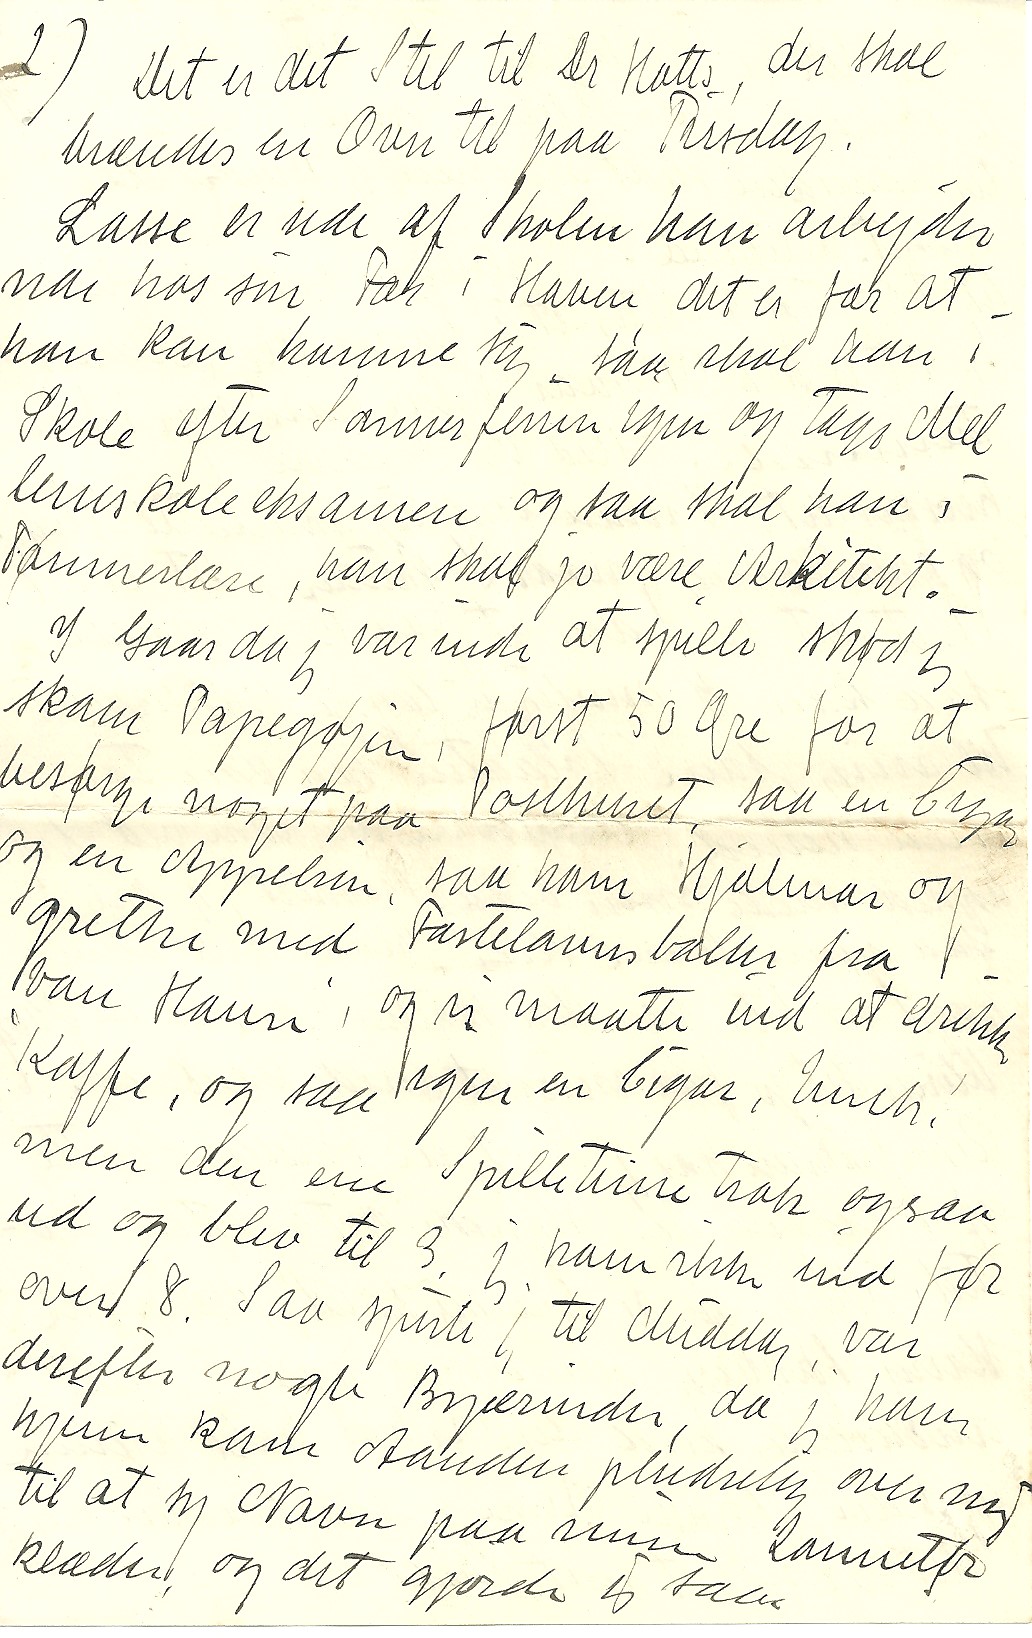 2) Det er det Stel til Dr Hatts, der skal
brændes en Ovn til paa Tirsdag.
Lasse er ude af Skolen han arbejder
nede hos sin Far i Haven det er for at
han kan komme sig, saa skal han i
Skole efter Sommerferien igen og tage Mel
lemskoleeksamen og saa skal han i
Tømmerlære, han skal jo være Arkitekt.
I Gaar da j var inde at spille skød j
skam Papegøjen, først 50 Øre for at
besørge noget paa Posthuset, saa en Cigar
og en Appelsin, saa kom Hjalmar og
Grethe med Fastelavnsboller fra I
van Hansen, og vi maatte ind at drikke
Kaffe, og saa igen en Cigar, Uneh!
men den ene Spilletime trak ogsaa
ud og blev til 3, j kom ikke ind før
over 8. Saa spiste j til Middag, var
derefter nogle Byærinder, da j kom
hjem kom Aanden pludselig over mig
til at sy Navn paa mine Lommetør
klæder, og det gjorde j saa